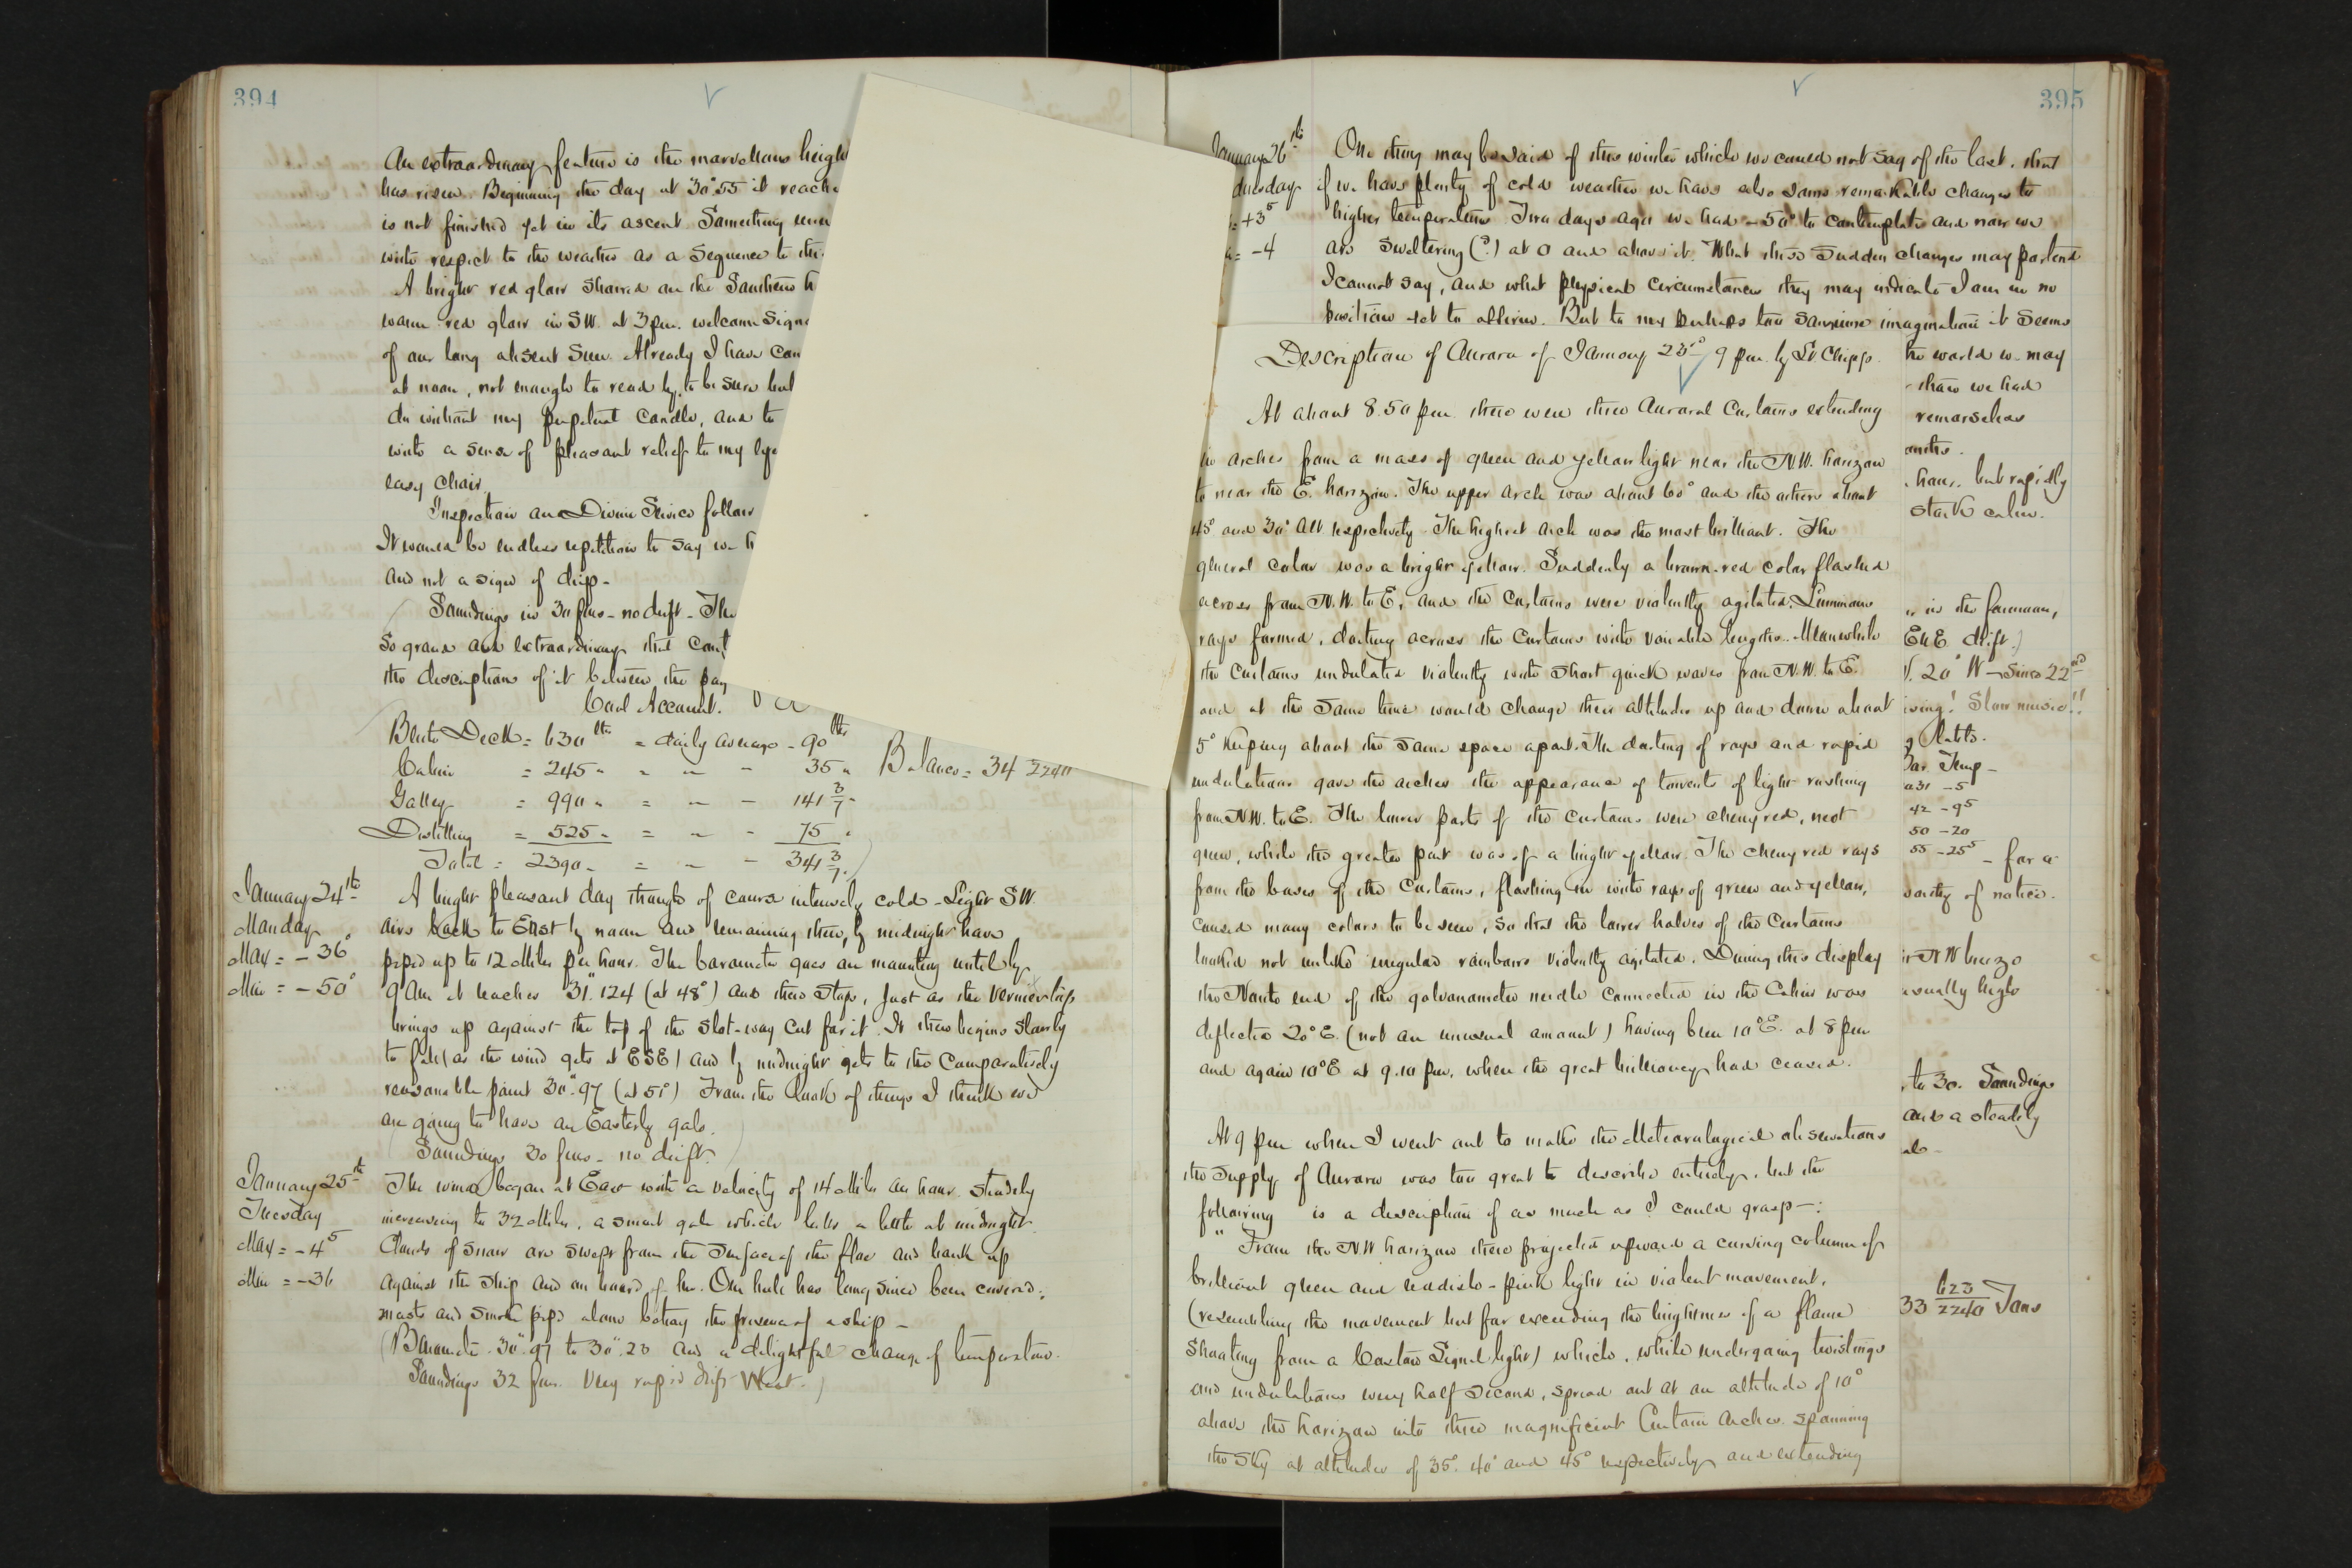 394
An extraordinary feature is the marvellous heigh
has risen. Beginning the day at 30".55 it reache
is not finished yet in its ascent. Something
with respect to the weather as a sequence to the
A bright red glow showed on the Southern h
warm red glow in SW. at 3 pm. welcome signs
of our long absent Sun. Already I have
at noon, not enough to read by, to be sure but
do without my perpetual candle, and to
with a sense of pleasant relief to my eye
easy chair.
Inspection and Divine Service follow
It would be endless repetition to say we h
and not a sign of drip-
Soundings in 30 fms - no drift - The
So grand and extraordinary that
the description of it between the pag
Coal Account.
Berth Deck = 630 lbs = daily average - 90 lbs
Cabin = 245 " " " - 35 " Balance = 34 2240
Galley = 990 " = " - 141 3/7 "
Distilling = 525 " = " - 75 "
Total = 2390 " = " - 341 3/7 )
January 24th
Monday
Max = -36°
Min = -50°
A bright pleasant day though of course intensely cold - Light SW.
airs back to East by noon and remaining there, by midnight have
piped up to 12 Miles per hour. The barometer goes on mounting until by
9 am it reaches 31".124 (at 48°) and then stops, just as the vernier
brings up against the top of the slot-way cut for it. It then begins slowly
to fall (as the wind gets at ESE) and by midnight gets to the comparatively
reasonable point 30".97 (at 51°) From the look of things I think we
are going to have an Easterly gale.
(Soundings 30 fms - no drift.)
January 25th
Tuesday
Max = -4 5
Min = -36
The wind began at East with a velocity of 14 Miles an hour steadily
increasing to 32 Miles, a smart gale which lulls a little at midnight.
Clouds of snow are swept from the surface of the floe and bank up
against the ship and on board of her. Our hull has long since been covered;
masts and smoke pipe alone betray the presence of a ship -
(Barometer 30".97 to 30".20 and a delightful change of temperature.
Soundings 32 fms. Very rapid drift West.)
395
January 26th
dnesday
= +3 5
= -4
One thing may be said of this winter which we could not say of the last, that
if we have plenty of cold weather we have also some remarkable changes to
higher temperatures. Two days ago we had -50° to contemplate and now we
are sweltering (?) at 0 and above it. What these sudden changes may portend
I cannot say, and what physical circumstances they may indicate I am in no
position yet to affirm. But to my perhaps too sanguine imagination it seems
Description of Aurora of January 23rd 9 pm. by Lt Chipp.
At about 8.50 pm there were three Auroral Curtains extending
in arches from a mass of green and yellow light near the N.W. horizon
to near the E. horizon. The upper arch was about 60° and the others about
45° and 30° Alt respectively. The highest arch was the most brilliant. The
general color was a bright yellow. Suddenly a brown-red color flashed
across from N.W. to E, and the Curtains were violently agitated. Luminous
rays formed, darting across the Curtains with variable lengths. Meanwhile
the Curtains undulated violently with short quick waves from N.W. to E.
and at the same time would change their altitudes up and down about
5° keeping about the same space apart. The darting of rays and rapid
undulations gave the arches the appearance of torrents of light rushing
from N.W. to E. The lower parts of the Curtains were cherry red, next
green, while the greater part was of a bright yellow. The cherry red rays
from the bases of the Curtains, flashing in with rays of green and yellow,
caused many colors to be seen, so that the lower halves of the Curtains
looked not unlike irregular rainbows violently agitated. During this display
the North end of the galvanometer needle connected in the Cabin was
deflected 20° E. (not an unusual amount) having been 10° E. at 8 pm
and again 10° E at 9.10 pm, when the great brilliancy had ceased.
At 9 pm when I went out to make the Meteorological observations
the supply of Aurora was too great to describe entirely, but the
following is a description of as much as I could grasp -:
" From the NW horizon there projected upward a curving column of
brilliant green and reddish-pink light in violent movement,
(resembling the movement but far exceeding the brightness of a flame
shooting from a Coston Signal light) which, while undergoing twistings
and undulations every half second, spread out at an altitude of 10°
above the horizon into three magnificent Curtain Arches spanning
the sky at altitudes of 35°, 40° and 45° respectively and extending
the world we may
than we had
remarseless
onths.
hour, but rapidly
stark calm.
in the forenoon,
ENE drift.)
20° W - since 22nd
wing! Slow music!!
Bar. Temp -
031 -5
42 -9 5
50 -20
55 -25 5
- for a
worthy of notice.
NW breeze
usually high
to 30. Soundings
and a steadily
33 623/2240 Tons